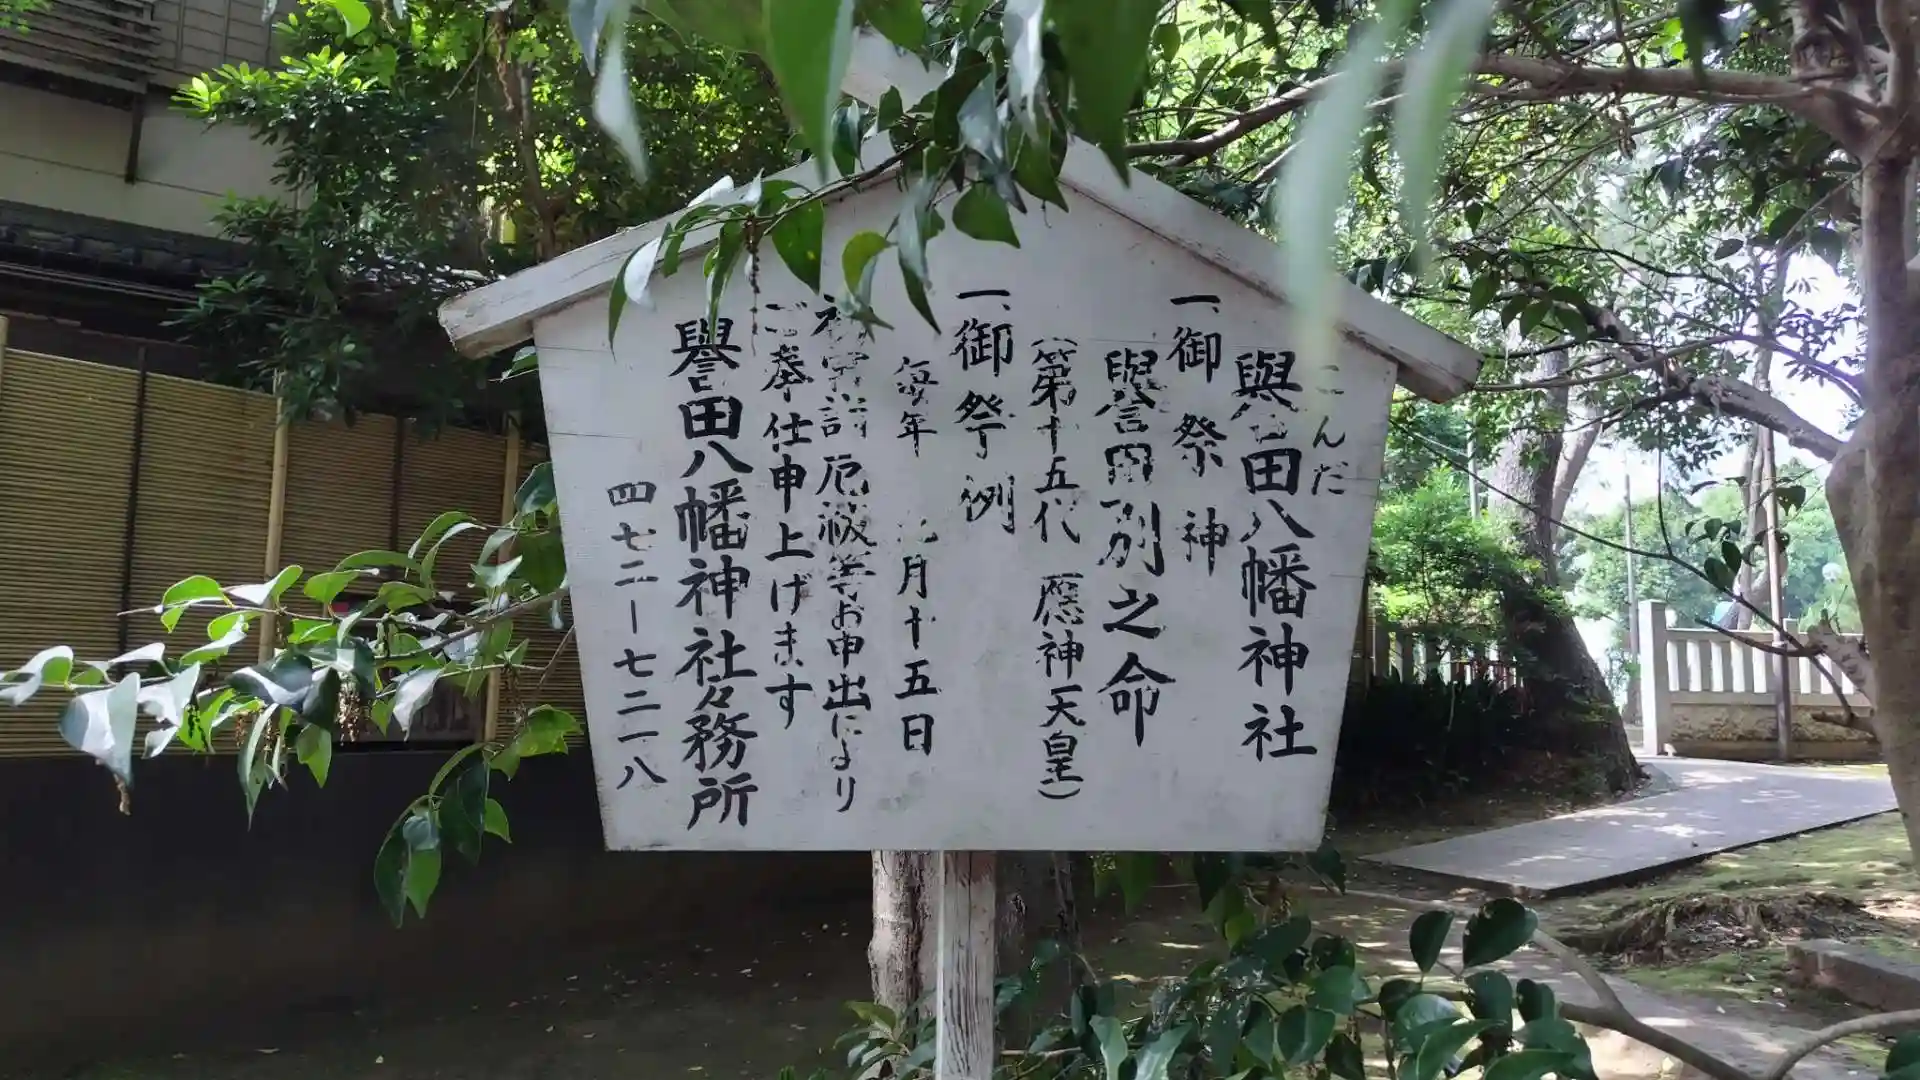 こんだ
譽田八幡神社
一、御祭神
譽田別之命
(第十五代 應神天皇)
一、御祭例
毎年 月十五日
初宮詣厄祓等お申出により
ご奉仕申上げます
譽田八幡神社々務所
四七二ー七二一八